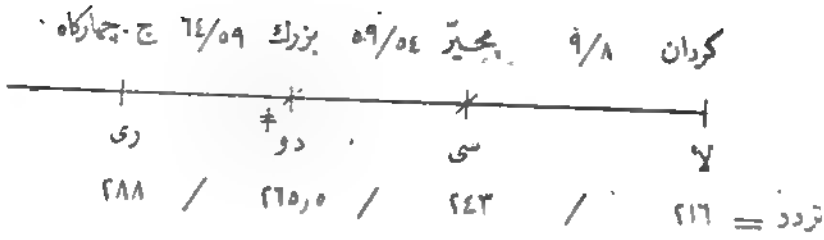 كردان ٩/٨ محيّر ٥٩/٥٤ بزرك ٦٤/٥٩ ج. چهاركاه.
لا سى دو ‡ رى
تردد = ٢١٦ / ٢٤٣ / ٢٦٥,٥ / ٢٨٨